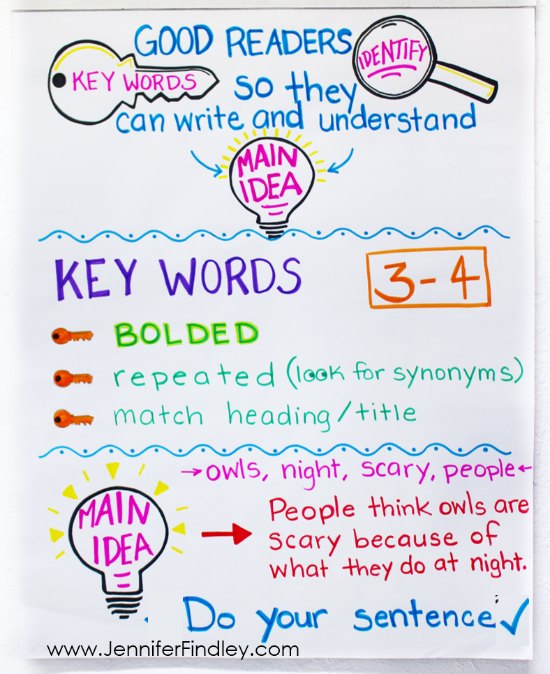 GOOD READERS
IDENTIFY
KEY WORDS
so they
can write and understand
MAIN
IDEA
KEY WORDS
3-4
BOLDED
repeated (look for synonyms)
match heading/title
→owls, night, scary, people←
MAIN
IDEA
People think owls are
scary because of
what they do at night.
Do your sentence ✓
www.JenniferFindley.com